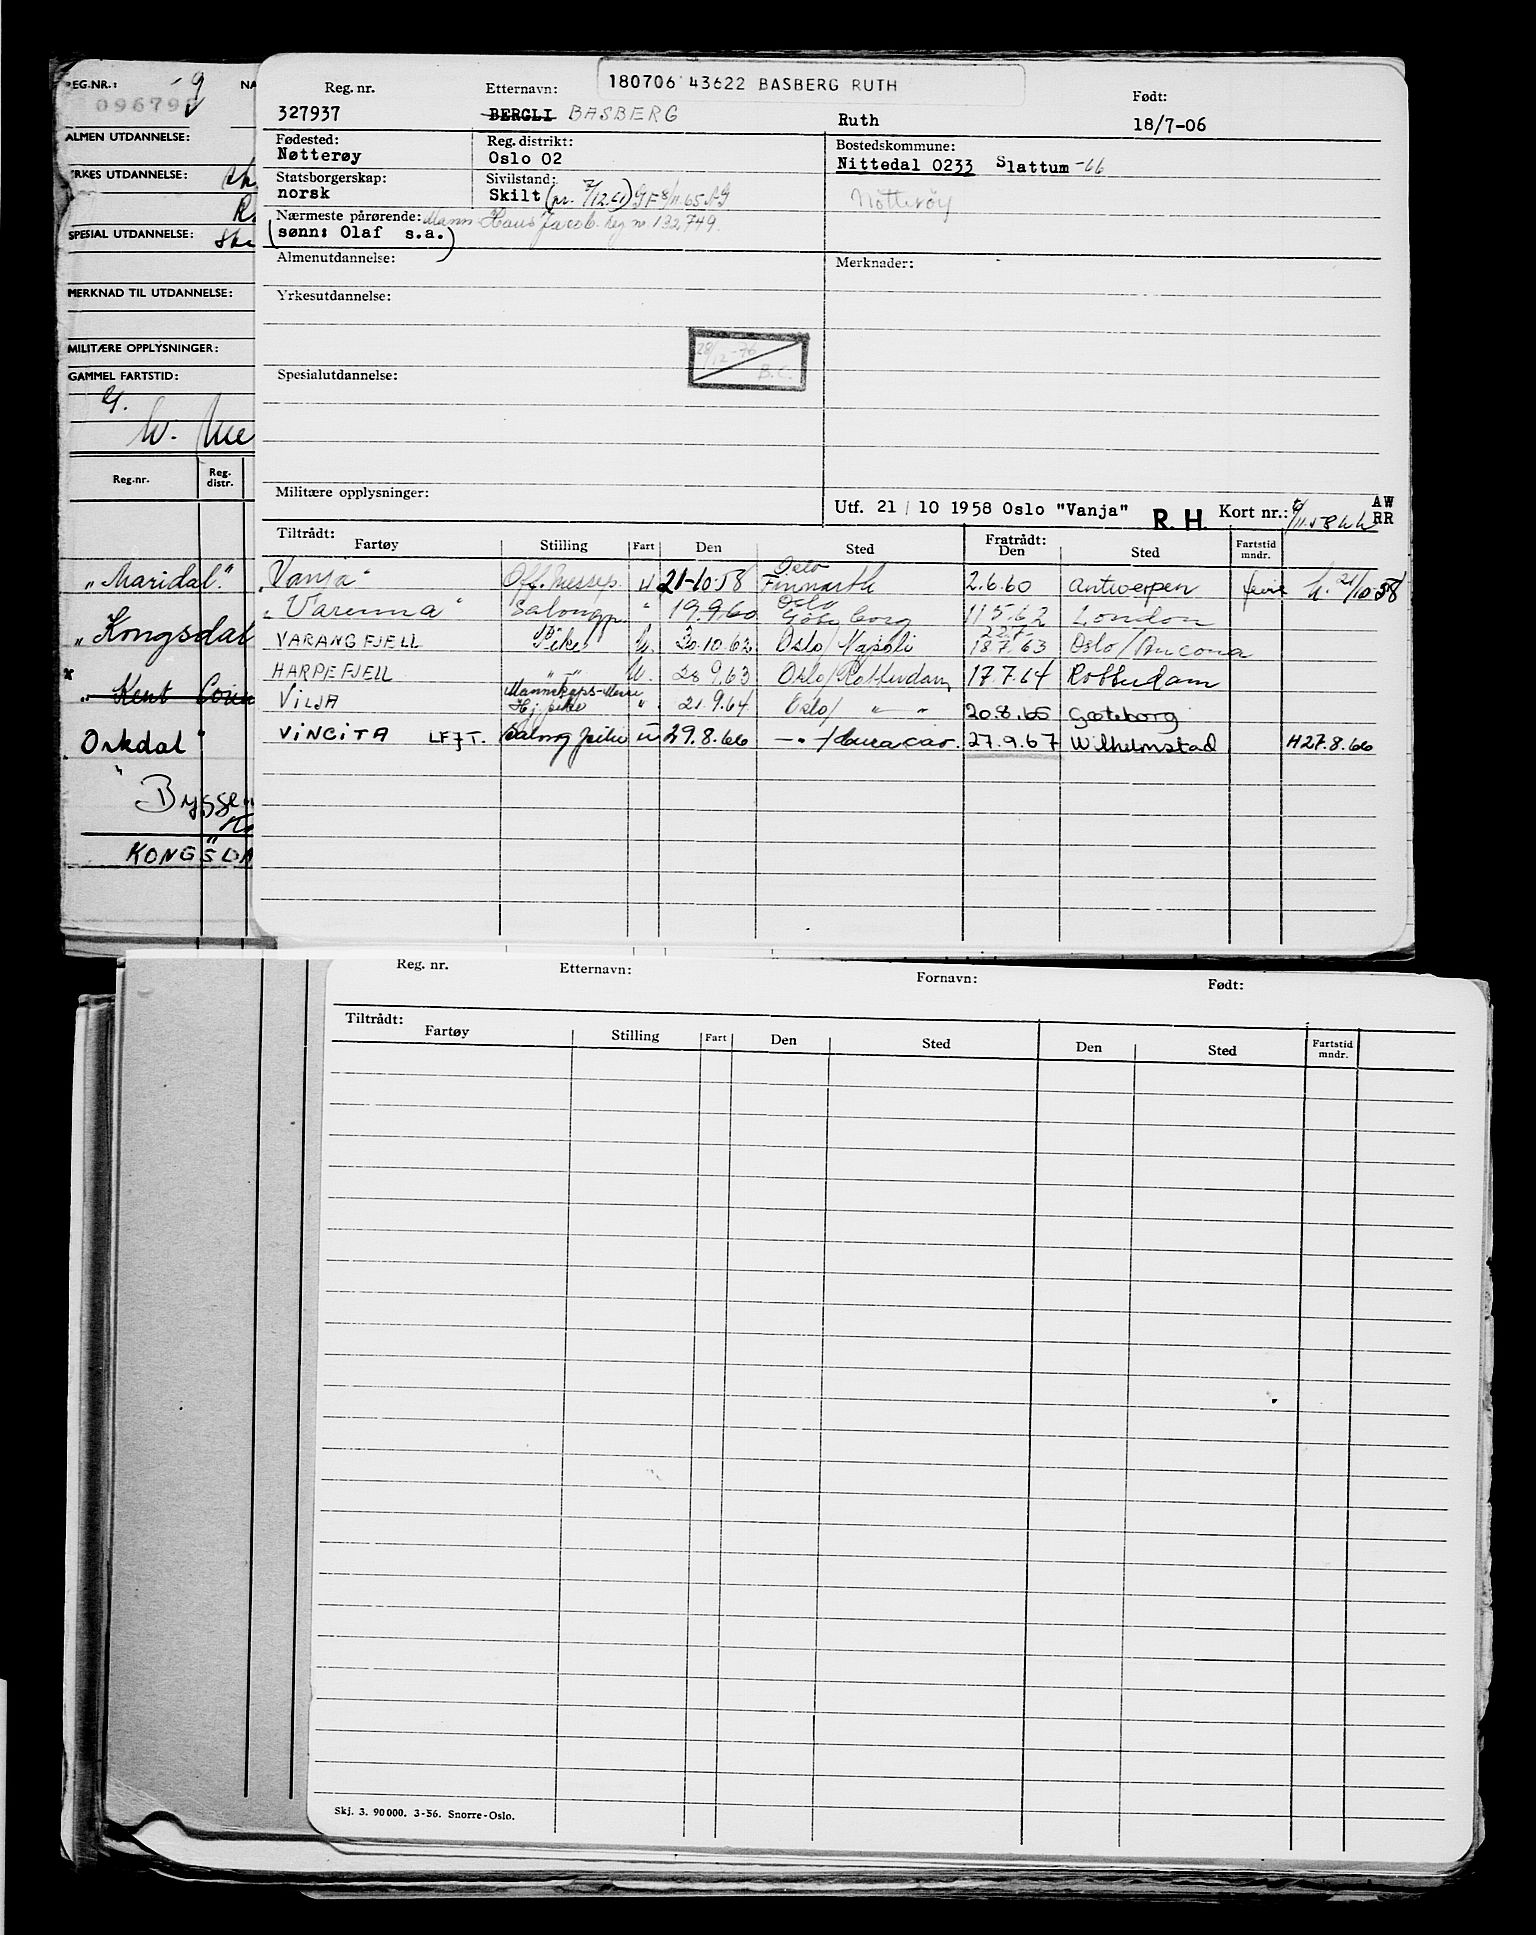 REG.NR.:
09679
NA
ALMEN UTDANNELSE:
YRKES UTDANNELSE:
SPECIAL UTDANNELSE:
MERKNAD TIL UTDANNELSE:
MILITÆRE OPPLYSNINGER:
GAMMEL FARTSTID:
Reg.nr.
Reg. distr.
"Maridal"
"Kongsdal
"Kent
Orkdal"
KONGSDA
180706 43622 BASBERG RUTH
Reg. nr. Etternavn: Født:
327937 BERGLI BASBERG Ruth 18/7-06
Fødested: Reg. distrikt: Bostedskommune:
Nøtterøy Oslo 02 Nittedal 0233 Slattum -66
Statsborgerskap: Sivilstand: Nøtterøy
norsk Skilt (pr. 7/12.61) GF 8/11.65
Nærmeste pårørende: Mann Hans Jacob. Reg nr 132.749.
(sønn: Olaf s.a.)
Almenutdannelse: Merknader:
Yrkesutdannelse:
28/12-76 B.C.
Spesialutdannelse:
Militære opplysninger:
Utf. 21/10 1958 Oslo "Vanja" R.H. Kort nr.: AW RR
Tiltrådt: Fratrådt:
Fartøy Stilling Fart Den Sted Den Sted Fartstid mndr.
"Vanja" Off.messep. U 21-10-58 Oslo Finnarth 2.6.60 Antwerpen ferie h. 21/10-58
"Varenna" Salongp. " 19.9.60 Oslo Göteborg 11.5.62 London
VARANGFJELL Pike U. 30.10.62 Oslo/Napoli 22.7- 18.7.63 Oslo/Ancona
HARPEFJELL " " U. 28.9.63 Oslo/Rotterdam 17.7.64 Rotterdam
VILJA Mannskaps-Messe Hj.pike " 21.9.64 Oslo/ " " 20.8.65 Gøteborg
VINGITA LFJT. Salong pike U 29.8.66 - " - / Curacao. 27.9.67 Wilhelmstad H27.8.66
Reg. nr. Etternavn: Fornavn: Født:
Tiltrådt:
Fartøy Stilling Fart Den Sted Den Sted Fartstid mndr.
Skj. 3. 90000. 3-56. Snorre-Oslo.